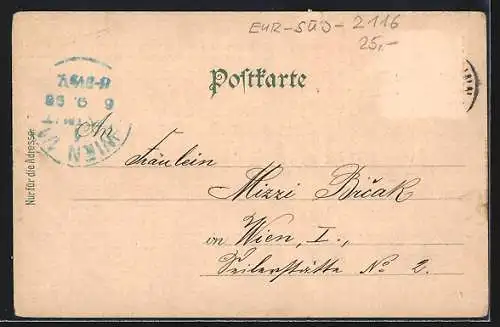 EUR-SÜD-2116
25,-
Postkarte
WIEN
6 9 98
An
Fräulein
Mizzi Bičak
in Wien, I.,
Seilerstätte No 2.
Nur für die Adresse.